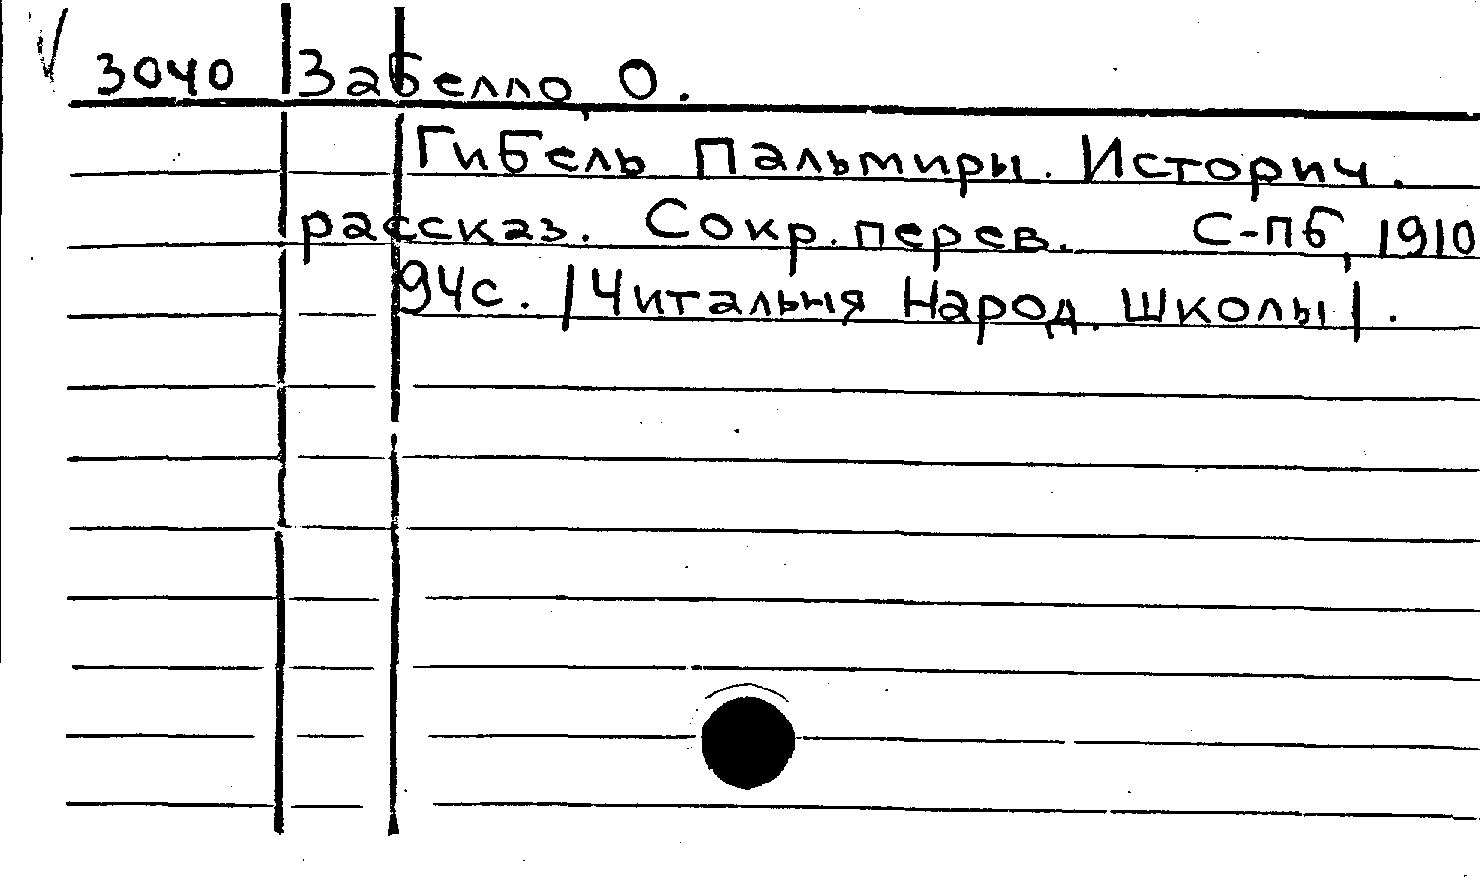 3040 Забелло, О.
Гибель Пальмиры. Историч.
рассказ. Сокр. перев. С-пб, 1910
94с. /Читальня Народ. школы/.